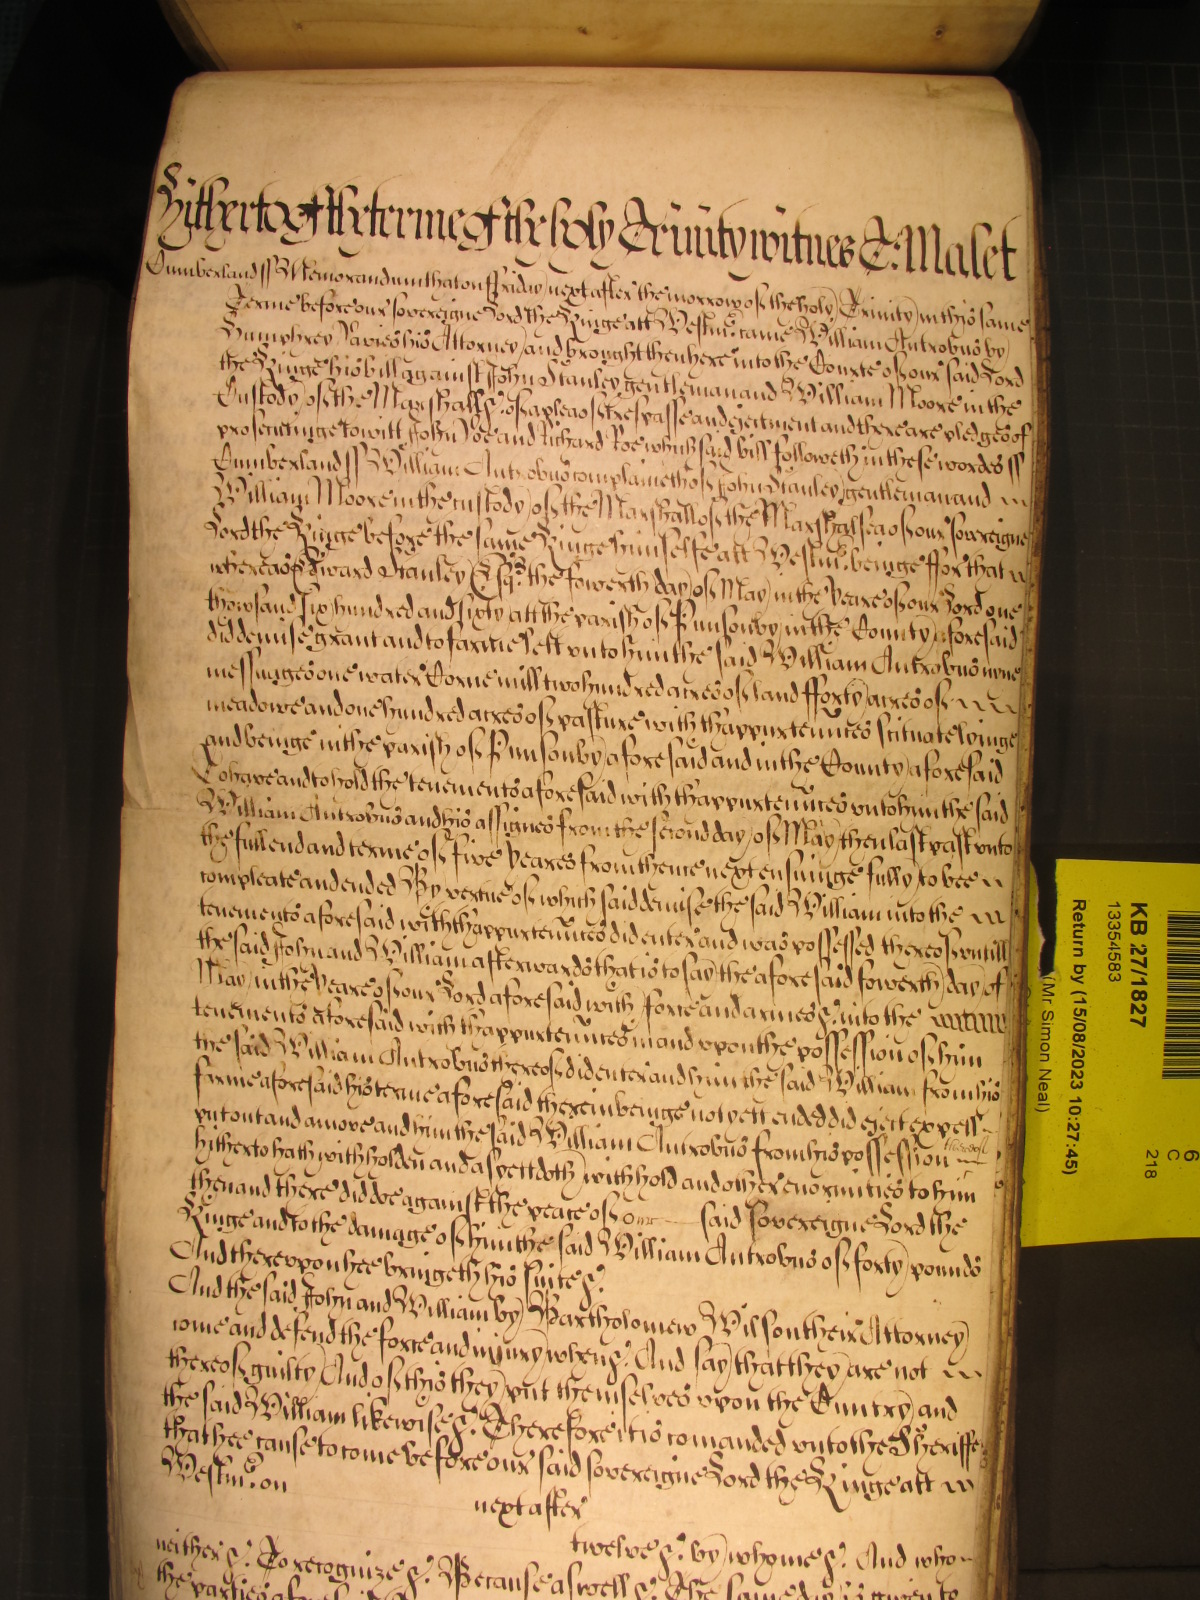 Hitherto of the terme of the holy Trinity witnes T: Malet
Cumberland ss Memorandum that on ffriday next after the morrow of the holy Trinity in this same
Terme before our sovereigne Lord the Kinge att Westm: came William Antrobus by
Humphrey Davies his Attorney and brought then here into the Courte of our said Lord
the Kinge his bill against John Stanley gentleman and William Moore in the
Custody of the Marshall &: of a plea of trespasse and ejectment and there are pledges of
prosecutinge to witt John Doe and Richard Roe which said bill followeth in these wordes ss
Cumberland ss William Antrobus complaineth of John Stanley gentleman and
William Moore in the custody of the Marshall of the Marshalsea of our sovereigne
Lord the Kinge before the same Kinge himselfe att Westm: beinge ffor that
whereas Edward Stanley Esqr. the fowerth day of May in the Yeare of our Lord one
thowsand six hundred and sixty att the parish of Punsonby in the County aforesaid
did demise grant and to farme lett unto him the said William Antrobus nyne
messuages one water Corne mill two hundred acres of land fforty acres of
meadowe and one hundred acres of pasture with thappurtennces scituate lyinge
and beinge in the parish of Punsonby aforesaid and in the County aforesaid
To have and to hold the tenements aforesaid with thappurtennces unto him the said
William Antrobus and his assignes from the second day of May then last past unto
the full end and terme of five Yeares from thence next ensuinge fully to bee
compleate and ended By vertue of which said demise the said William into the
tenements aforesaid with thappurtennces did enter and was possessed thereof untill
the said John and William afterwards that is to say the aforesaid fowerth day of
May in the Yeare of our Lord aforesaid with force and armes &: into the
tenements aforesaid with thappurtennces in and upon the possession of him
the said William Antrobus thereof did enter and him the said William from his
farme aforesaid his terme aforesaid therein beinge not yett ended did eject expell
put out and amove and him the said William Antrobus from his possession thereof
hitherto hath withholden and as yett doth withhold and other enormities to him
then and there did doe against the peace of our said sovereigne Lord the
Kinge and to the damage of him the said William Antrobus of forty pounds
And thereupon hee bringeth his suite &:
And the said John and William by Bartholomew Wilson their Attorney
come and defend the force and injury when &: And say that they are not
thereof guilty And of this they put themselves upon the Cuntry and
the said William likewise &: Therefore it is comanded unto the Sheriffe
that hee cause to come before our said sovereigne Lord the Kinge att
Westm: on
next after
twelve &: by whome &: And who
neither &: To recognize &: Because aswell &: The same day is given to
the parties
KB 27/1827
13354583
Return by (15/08/2023 10:27:45)
(Mr Simon Neal)
6
C
218